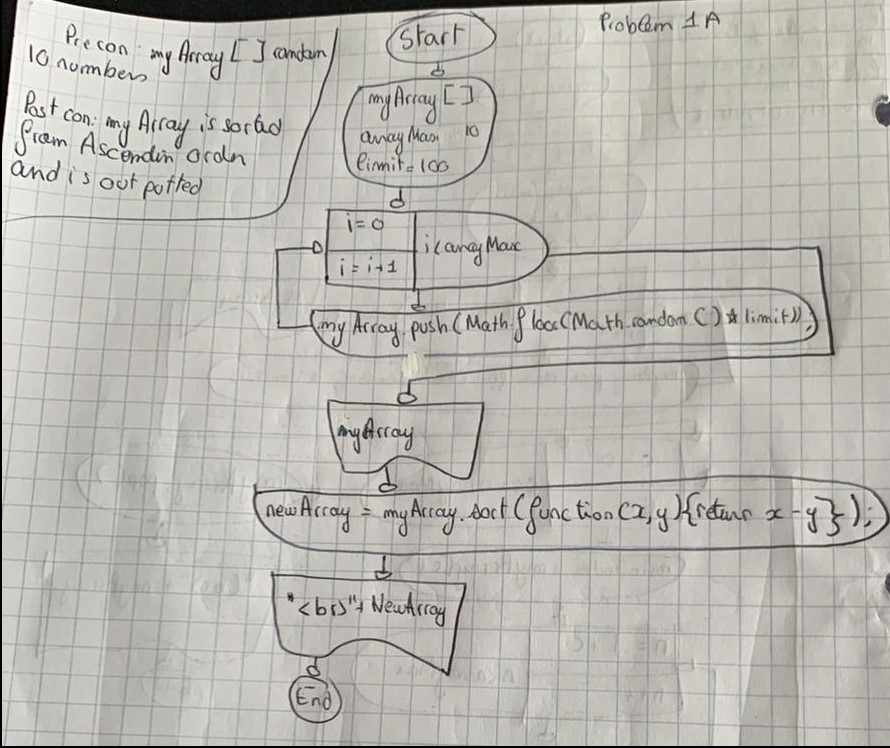 Problem 1A
Precon: myArray[] random
10 numbers
Post con: myArray is sorted
from Ascendin order
and is out putted
Start
myArray[]
arrayMax 10
limit=100
i=0
i<arrayMax
i=i+1
myArray.push(Math.floor(Math.random()*limit));
myArray
newArray = myArray.sort(function(x,y){return x-y});
"<br>"+NewArray
End